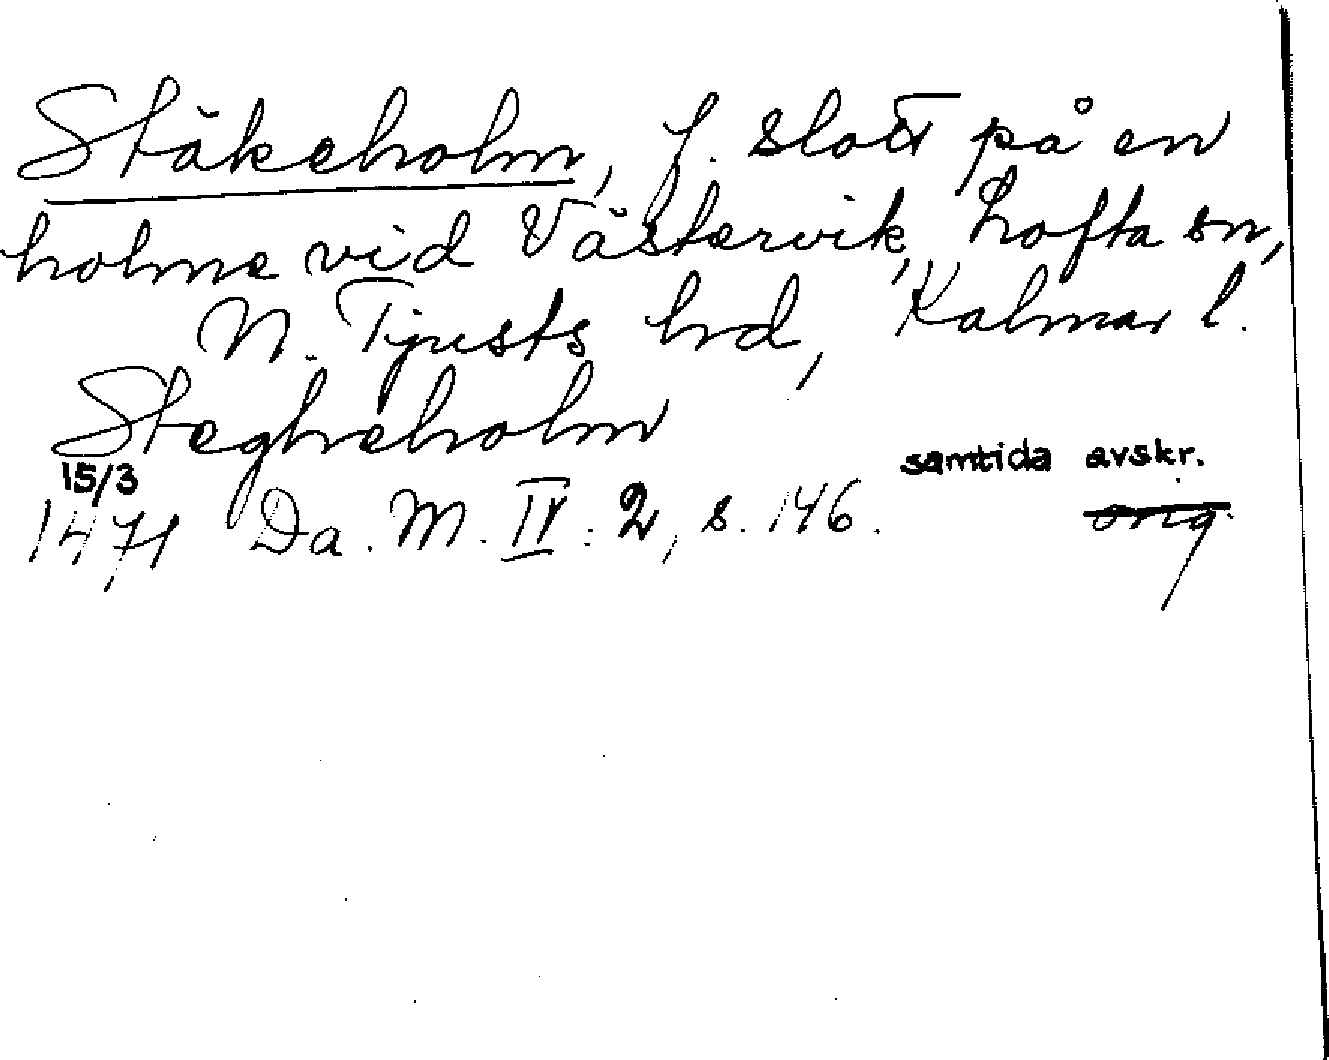 Stäkeholm, f. slott på en
holme vid Västervik, Lofta sn,
N. Tjusts hd, Kalmar l.
Stegheholm
15/3 samtida avskr.
1471 Da. M. IV. 2, s. 146. orig.